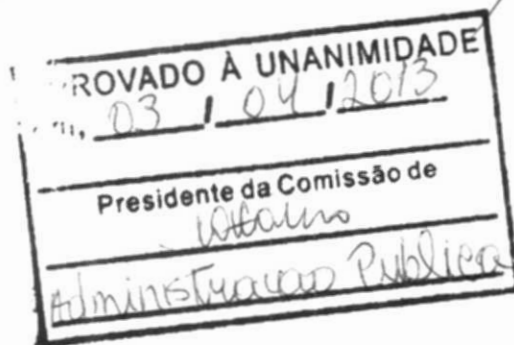 ROVADO À UNANIMIDADE
03 / 04 / 2013
Presidente da Comissão de
Administração Pública